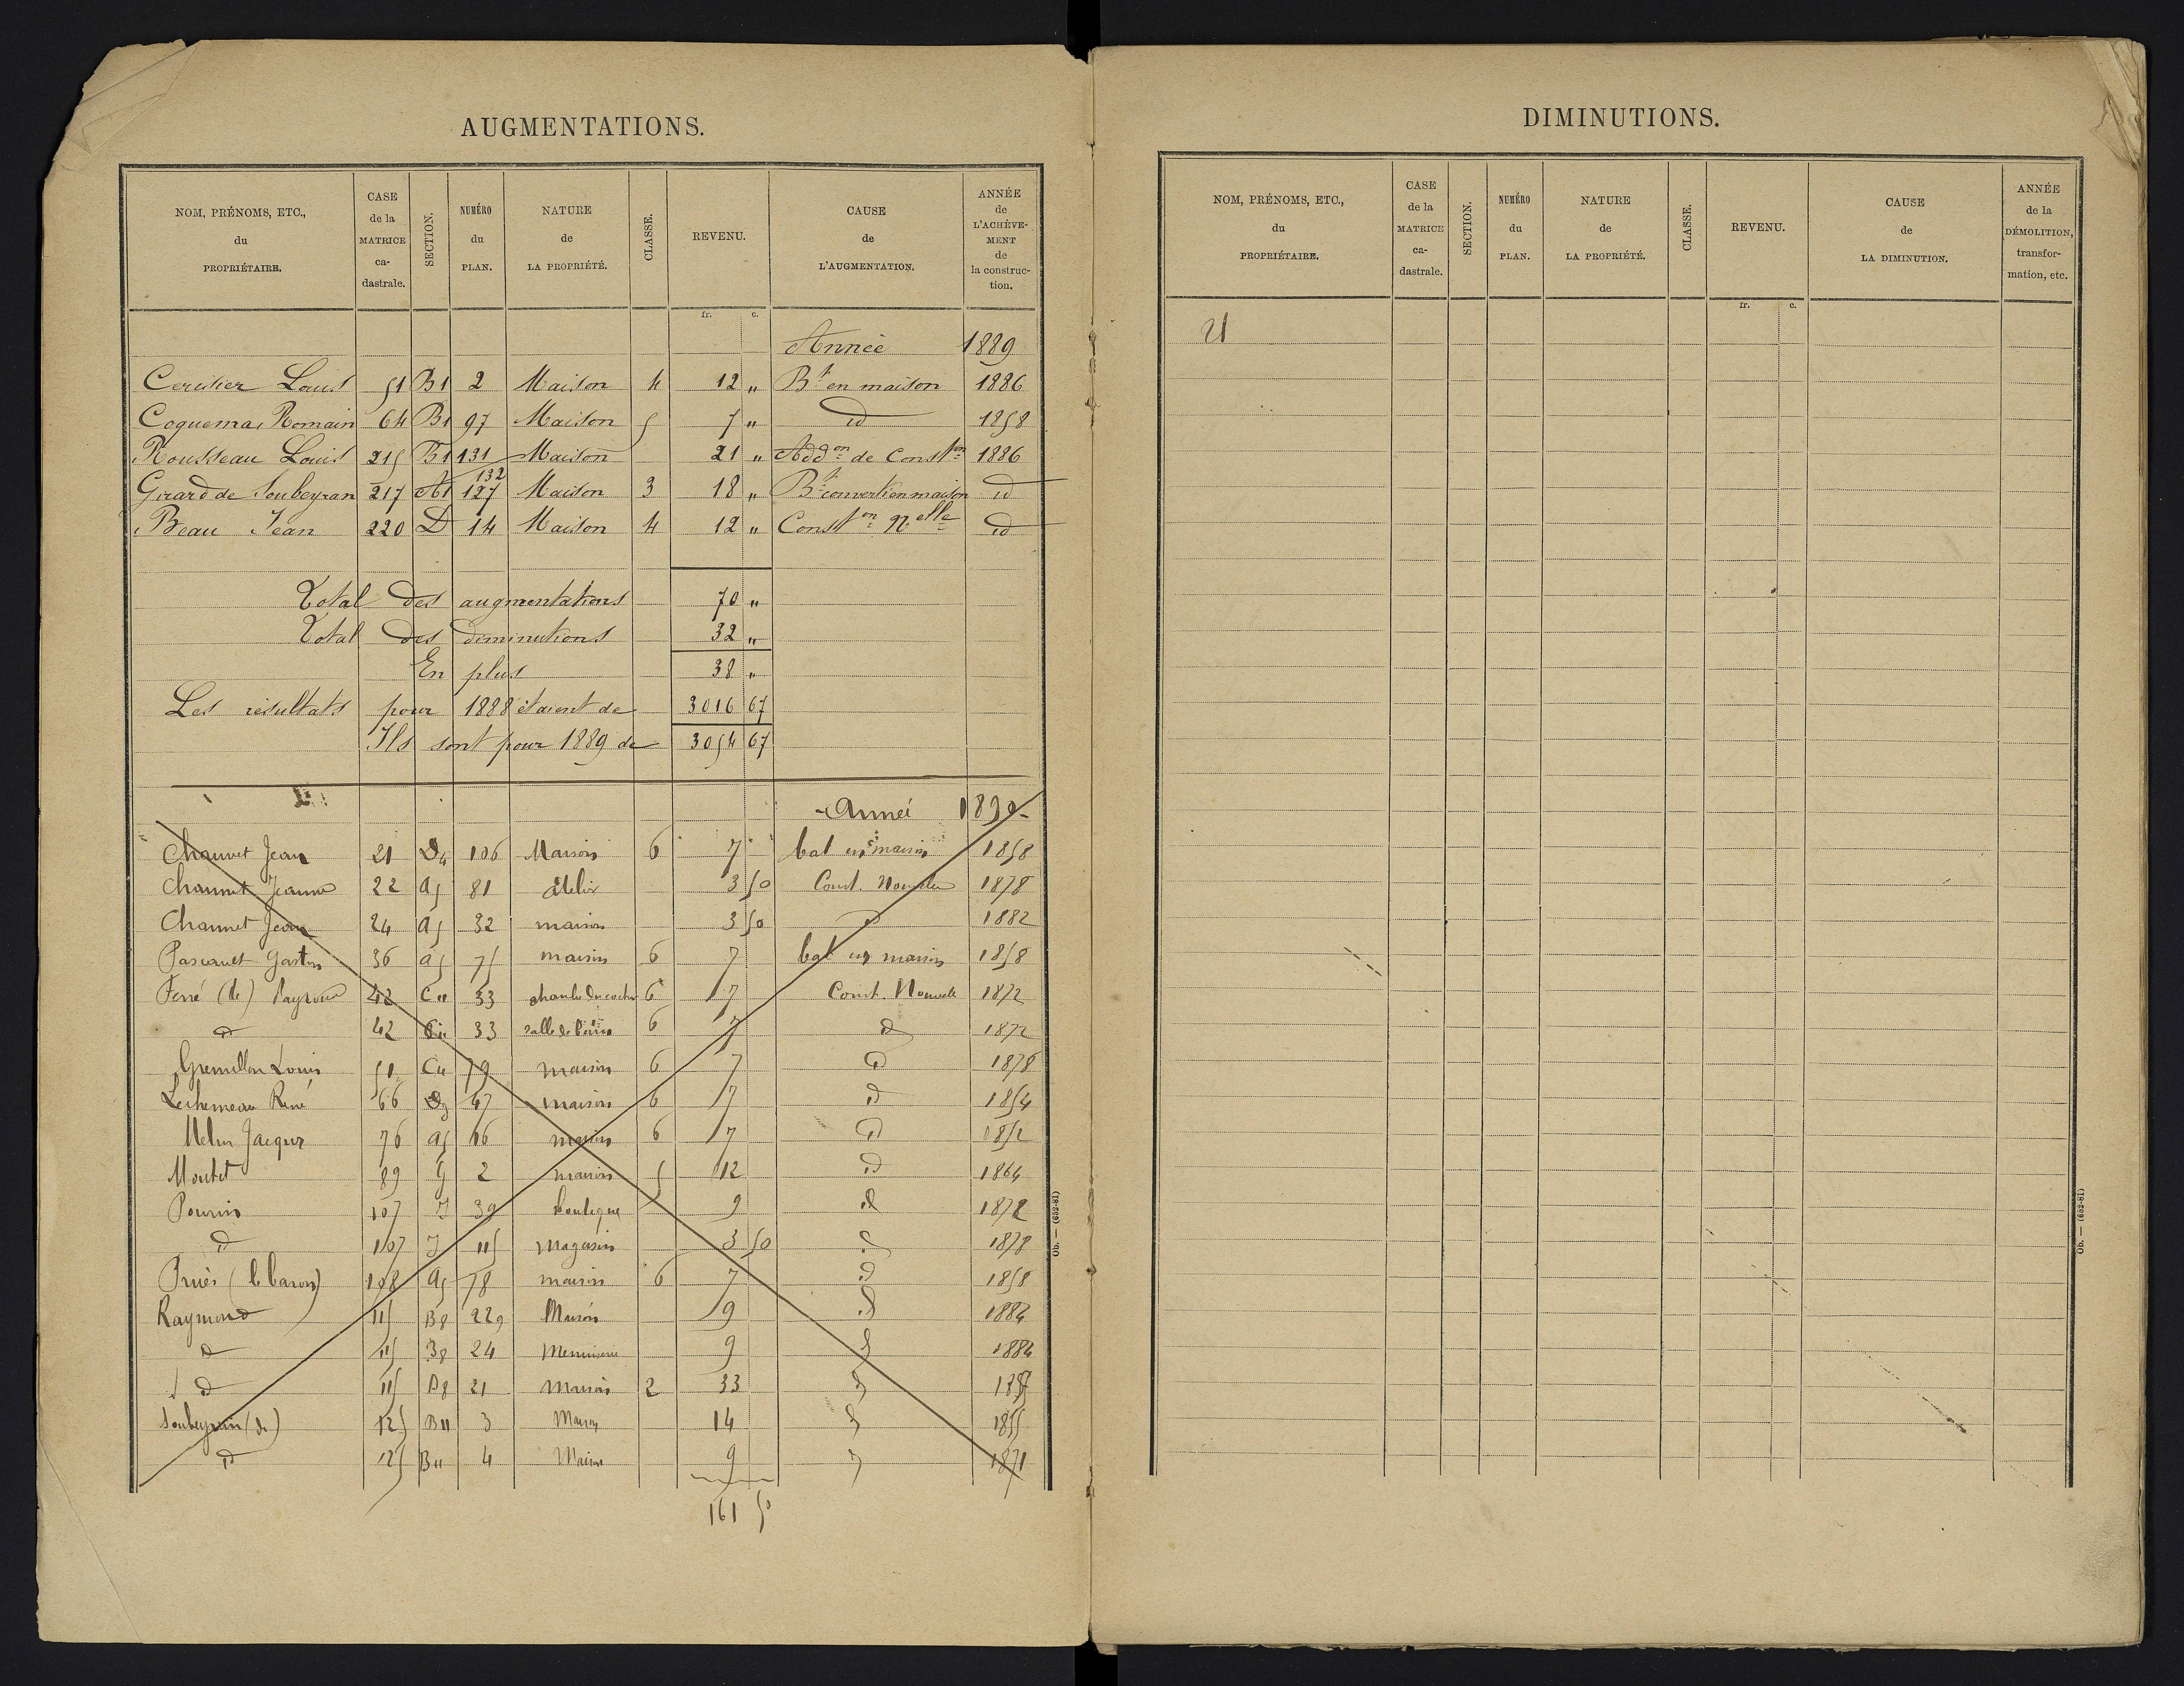 AUGMENTATIONS.
NOM, PRÉNOMS, ETC., du PROPRIÉTAIRE. CASE de la MATRICE ca-dastrale. SECTION. NUMÉRO du PLAN. NATURE de LA PROPRIÉTÉ. CLASSE. REVENU. CAUSE de L'AUGMENTATION. ANNÉE de L'ACHÈVE-MENT de la construc-tion.
fr. c.
Année 1889
Cerisier Louis 51 B1 2 Maison 4 12 " Bt en maison 1886
Coquema Romain 64 B1 97 Maison 5 7 " id 1858
Rousseau Louis 215 B1 131 Maison 21 " Addon de Conston 1886
132
Girard de Soubeyran 217 A1 127 Maison 3 18 " Bt converti en maison id
Beau Jean 220 D 14 Maison 4 12 " Conston Nelle id
Total des augmentations 70 "
Total des diminutions 32 "
En plus 38 "
Les résultats pour 1888 étaient de 3016 67
Ils sont pour 1889 de 3054 67
Année 1890
Chauvet Jean 21 D4 106 Maison 6 7 bat en maison 1858
Chauvet Jeanne 22 a5 81 atelier 3 50 Const. Nouvelle 1878
Chauvet Jean 24 a5 32 maison 3 50 id 1882
Gaston 36 a5 75 maison 6 7 bat en maison 1858
Ferré (de) Payroux 42 C11 33 chambre du cocher 6 7 Const. Nouvelle 1872
id 42 C11 33 salle de bains 6 7 id 1872
Gremillon Louis 51 C11 79 maison 6 7 id 1878
René 66 67 maison 6 7 id 1854
Jacques 76 a5 66 maison 6 7 id 1852
Moutet 89 G 2 maison 5 12 id 1864
Pourin 107 J 39 boutique 9 id 1872
id 107 J 115 Magasin 3 50 id 1878
(le baron) 108 a5 78 maison 6 7 id 1858
Raymond 115 B8 229 Maison 9 id 1884
id 115 B8 24 Menuiserie 9 id 1884
id 115 B8 21 maison 2 33 id
Soubeyran (de) 125 B11 3 Maison 14 id 1855
id 125 B11 4 Maison 9 id 1871
161 50
Ob. — (652-81)
DIMINUTIONS.
NOM, PRÉNOMS, ETC., du PROPRIÉTAIRE. CASE de la MATRICE ca-dastrale. SECTION. NUMÉRO du PLAN. NATURE de LA PROPRIÉTÉ. CLASSE. REVENU. CAUSE de LA DIMINUTION. ANNÉE de la DÉMOLITION, transfor-mation, etc.
fr. c.
21
Ob. — (652-81)